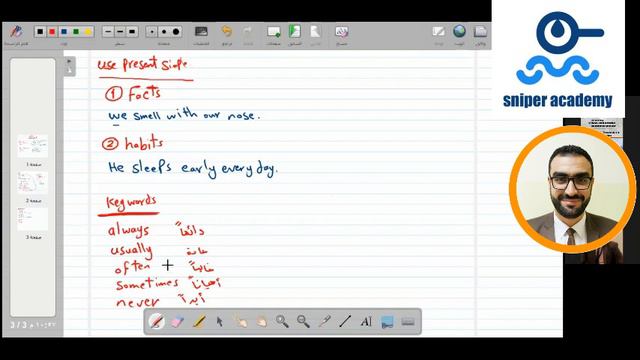 sniper academy
use present simple
① Facts
we smell with our nose.
② habits
He sleeps early every day.
Key words
always دائماً
usually عادة
often غالباً
sometimes أحياناً
never أبداً
صفحة 1
صفحة 2
صفحة 3
3 / 3